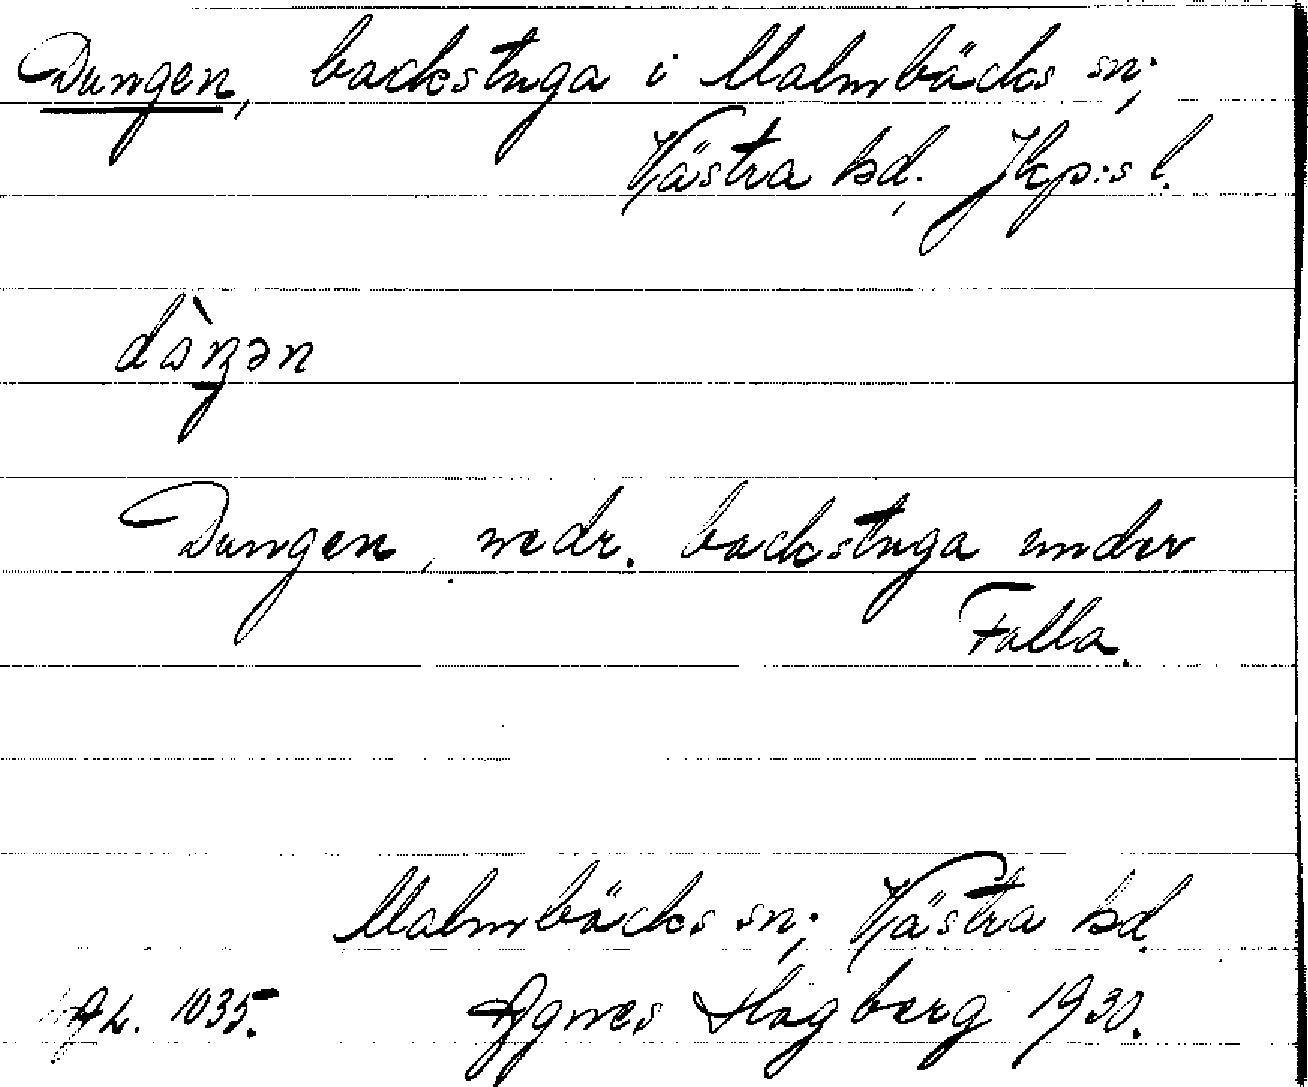 Dungen, backstuga i Malmbäcks sn;
Västra hd, Jkp:s l.
Dungen, nedr. backstuga under
Falla.
Malmbäcks sn; Västra hd.
1035. Agnes Hagberg 1930.